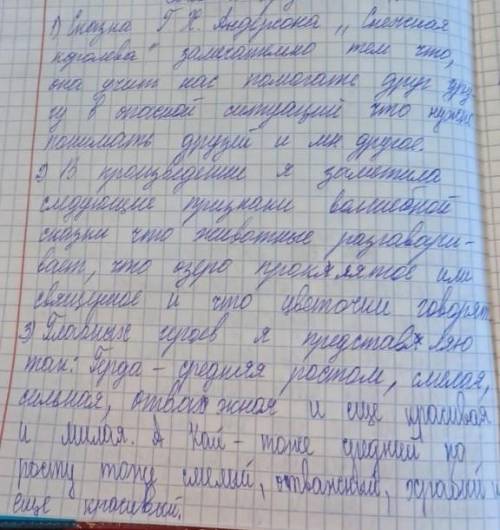 1) Сказка Г Х. Андерсона ,, Снежная
королева" замечательно тем что,
она учить нас помогать друг дру-
гу в опасной ситуаций что нужно
понимать друзей и мн. другое.
2) В произведение я заметила
следующие признаки волшебной
сказки что животные разговари-
вает, что озеро проклятое или
священое и что цветочки говорят
3) Главных героев я представляю
так: Герда - средняя ростом, смелая,
сильная, отважная и еще красивая
и милая. А Кай - тоже средний по
росту тоже смелый, отважный, храбрый и
еще красивый.